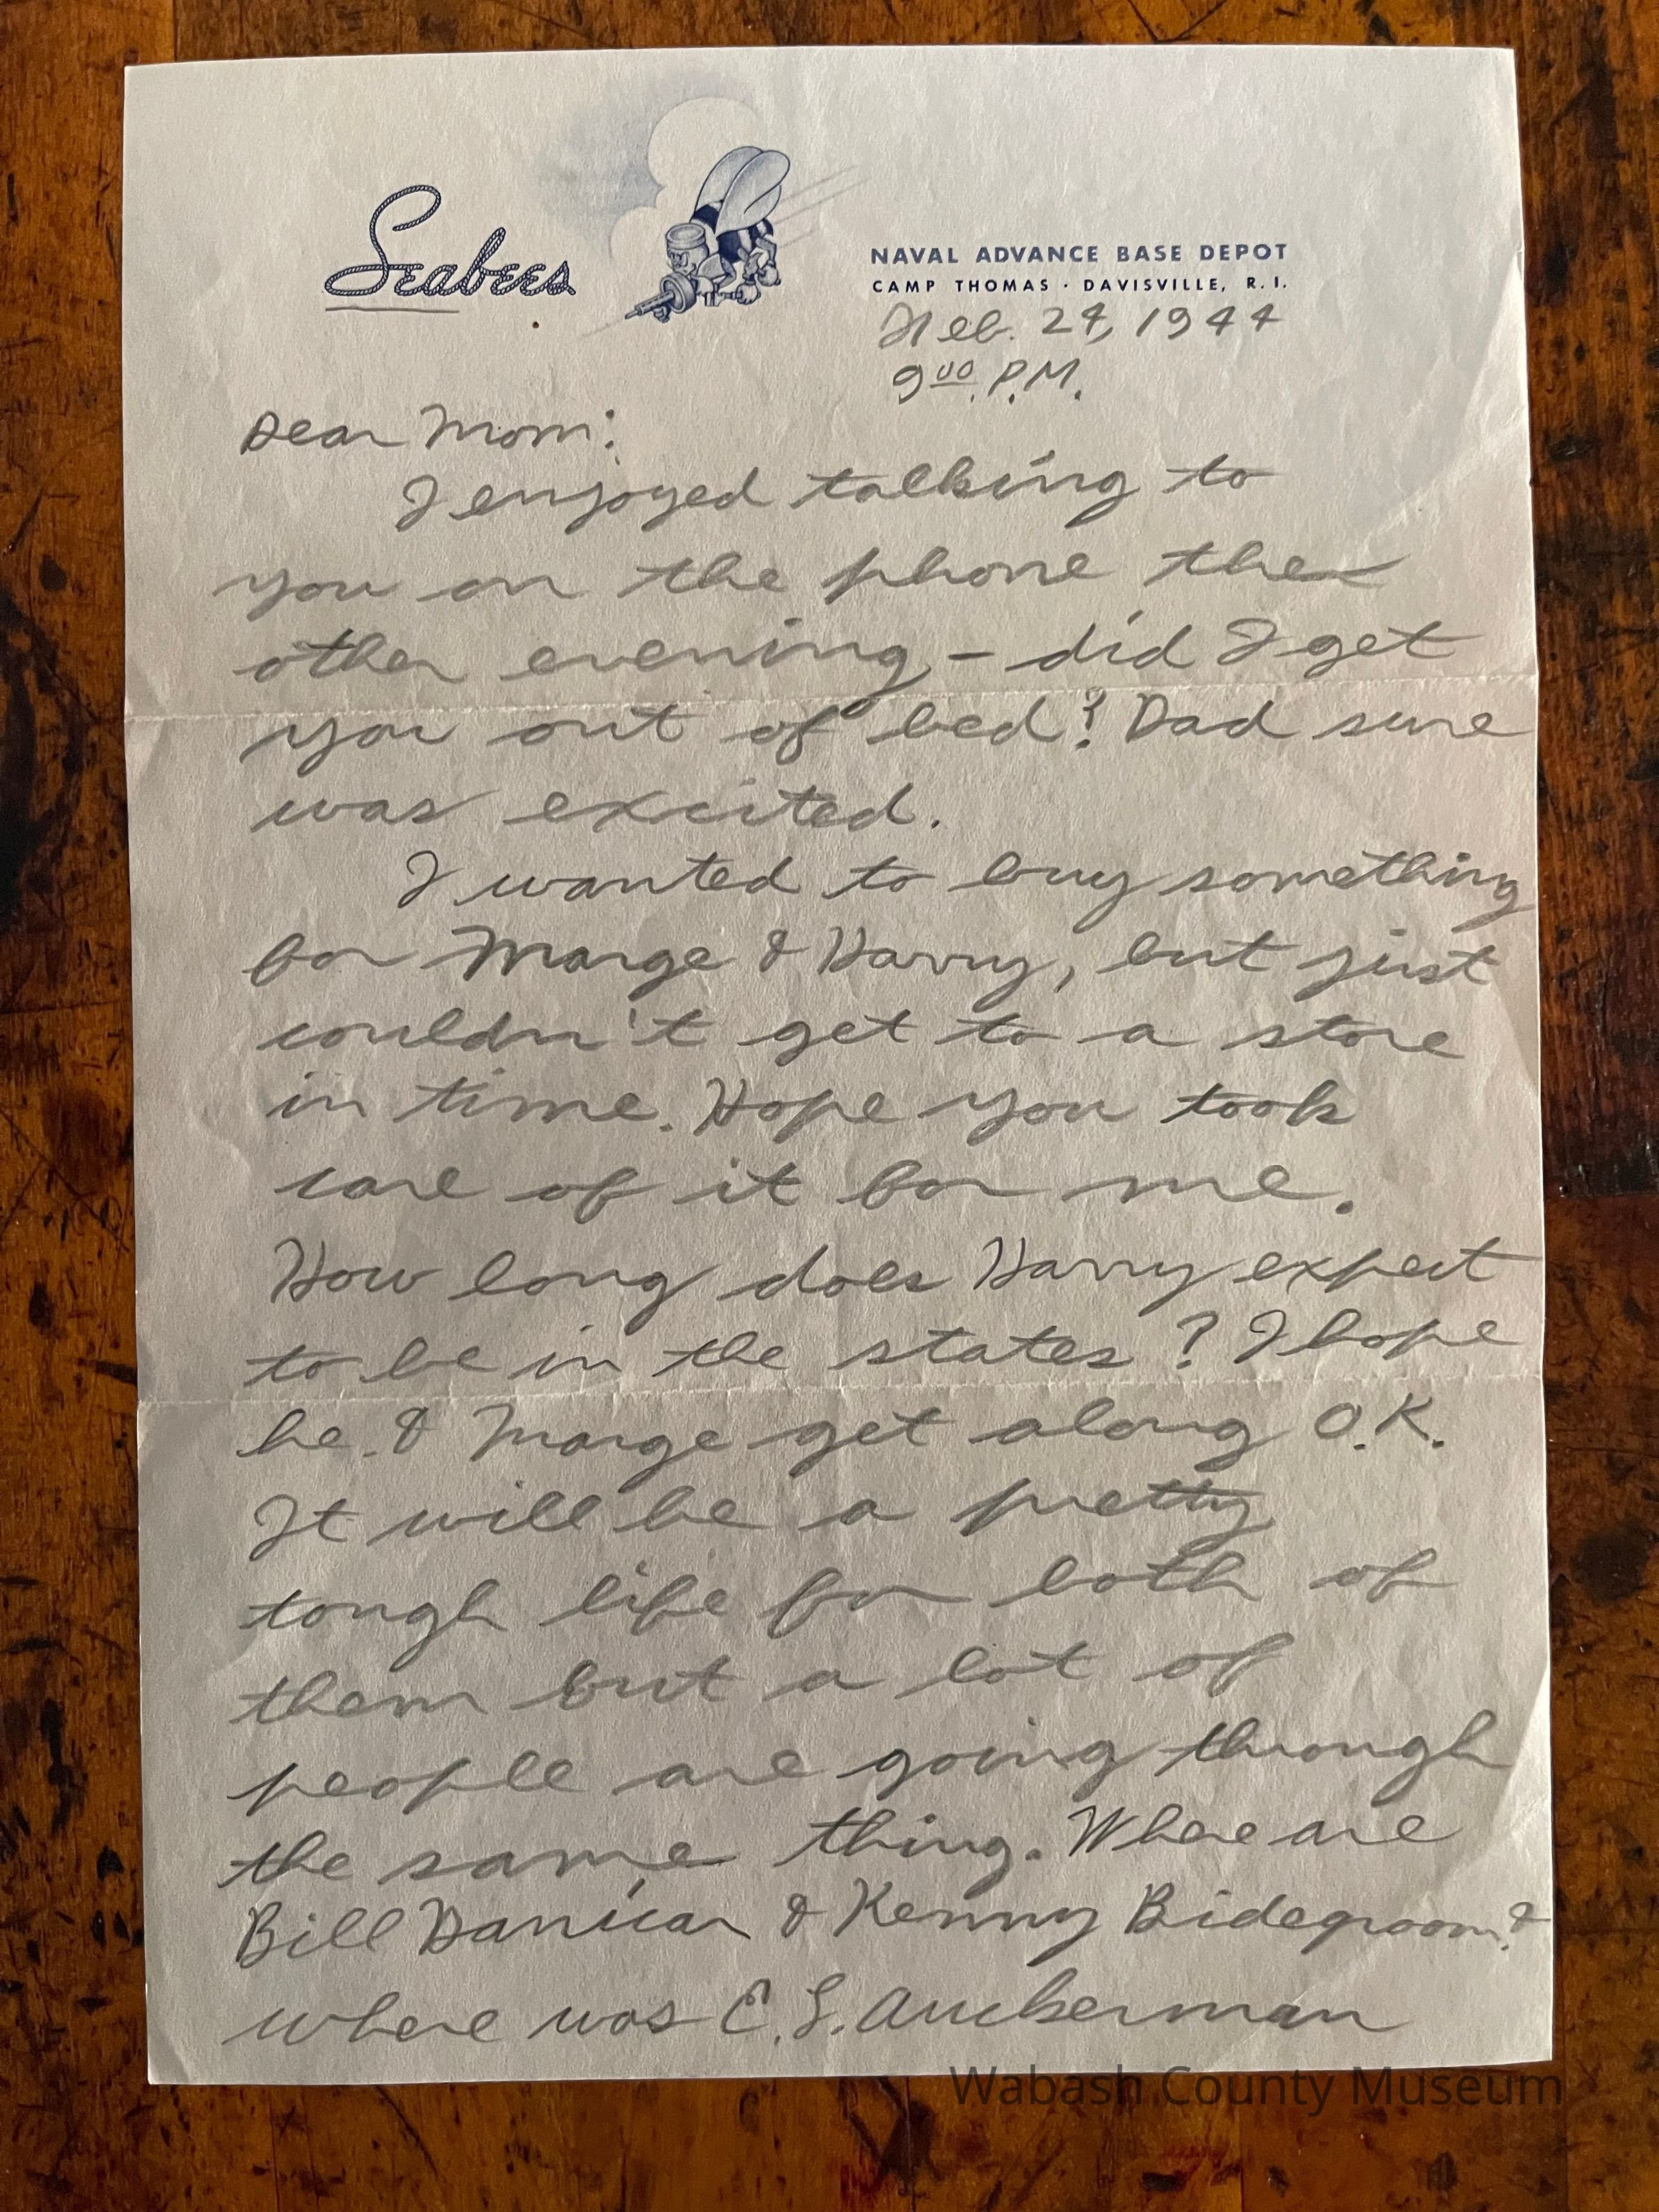 Seabees
NAVAL ADVANCE BASE DEPOT
CAMP THOMAS · DAVISVILLE, R. I.
Feb. 24, 1944
9 00 P.M.
Dear Mom:
I enjoyed talking to
you on the phone the
other evening, - did I get
you out of bed? Dad sure
was excited.
I wanted to buy something
for Marge & Harry, but just
couldn't get to a store
in time. Hope you took
care of it for me.
How long does Harry expect
to be in the states? I hope
he & Marge get along O.K.
It will be a pretty
tough life for both of
them but a lot of
people are going through
the same thing. Where are
Bill & Kenny Bidegroom?
where was E. S. Auckerman
Wabash County Museum